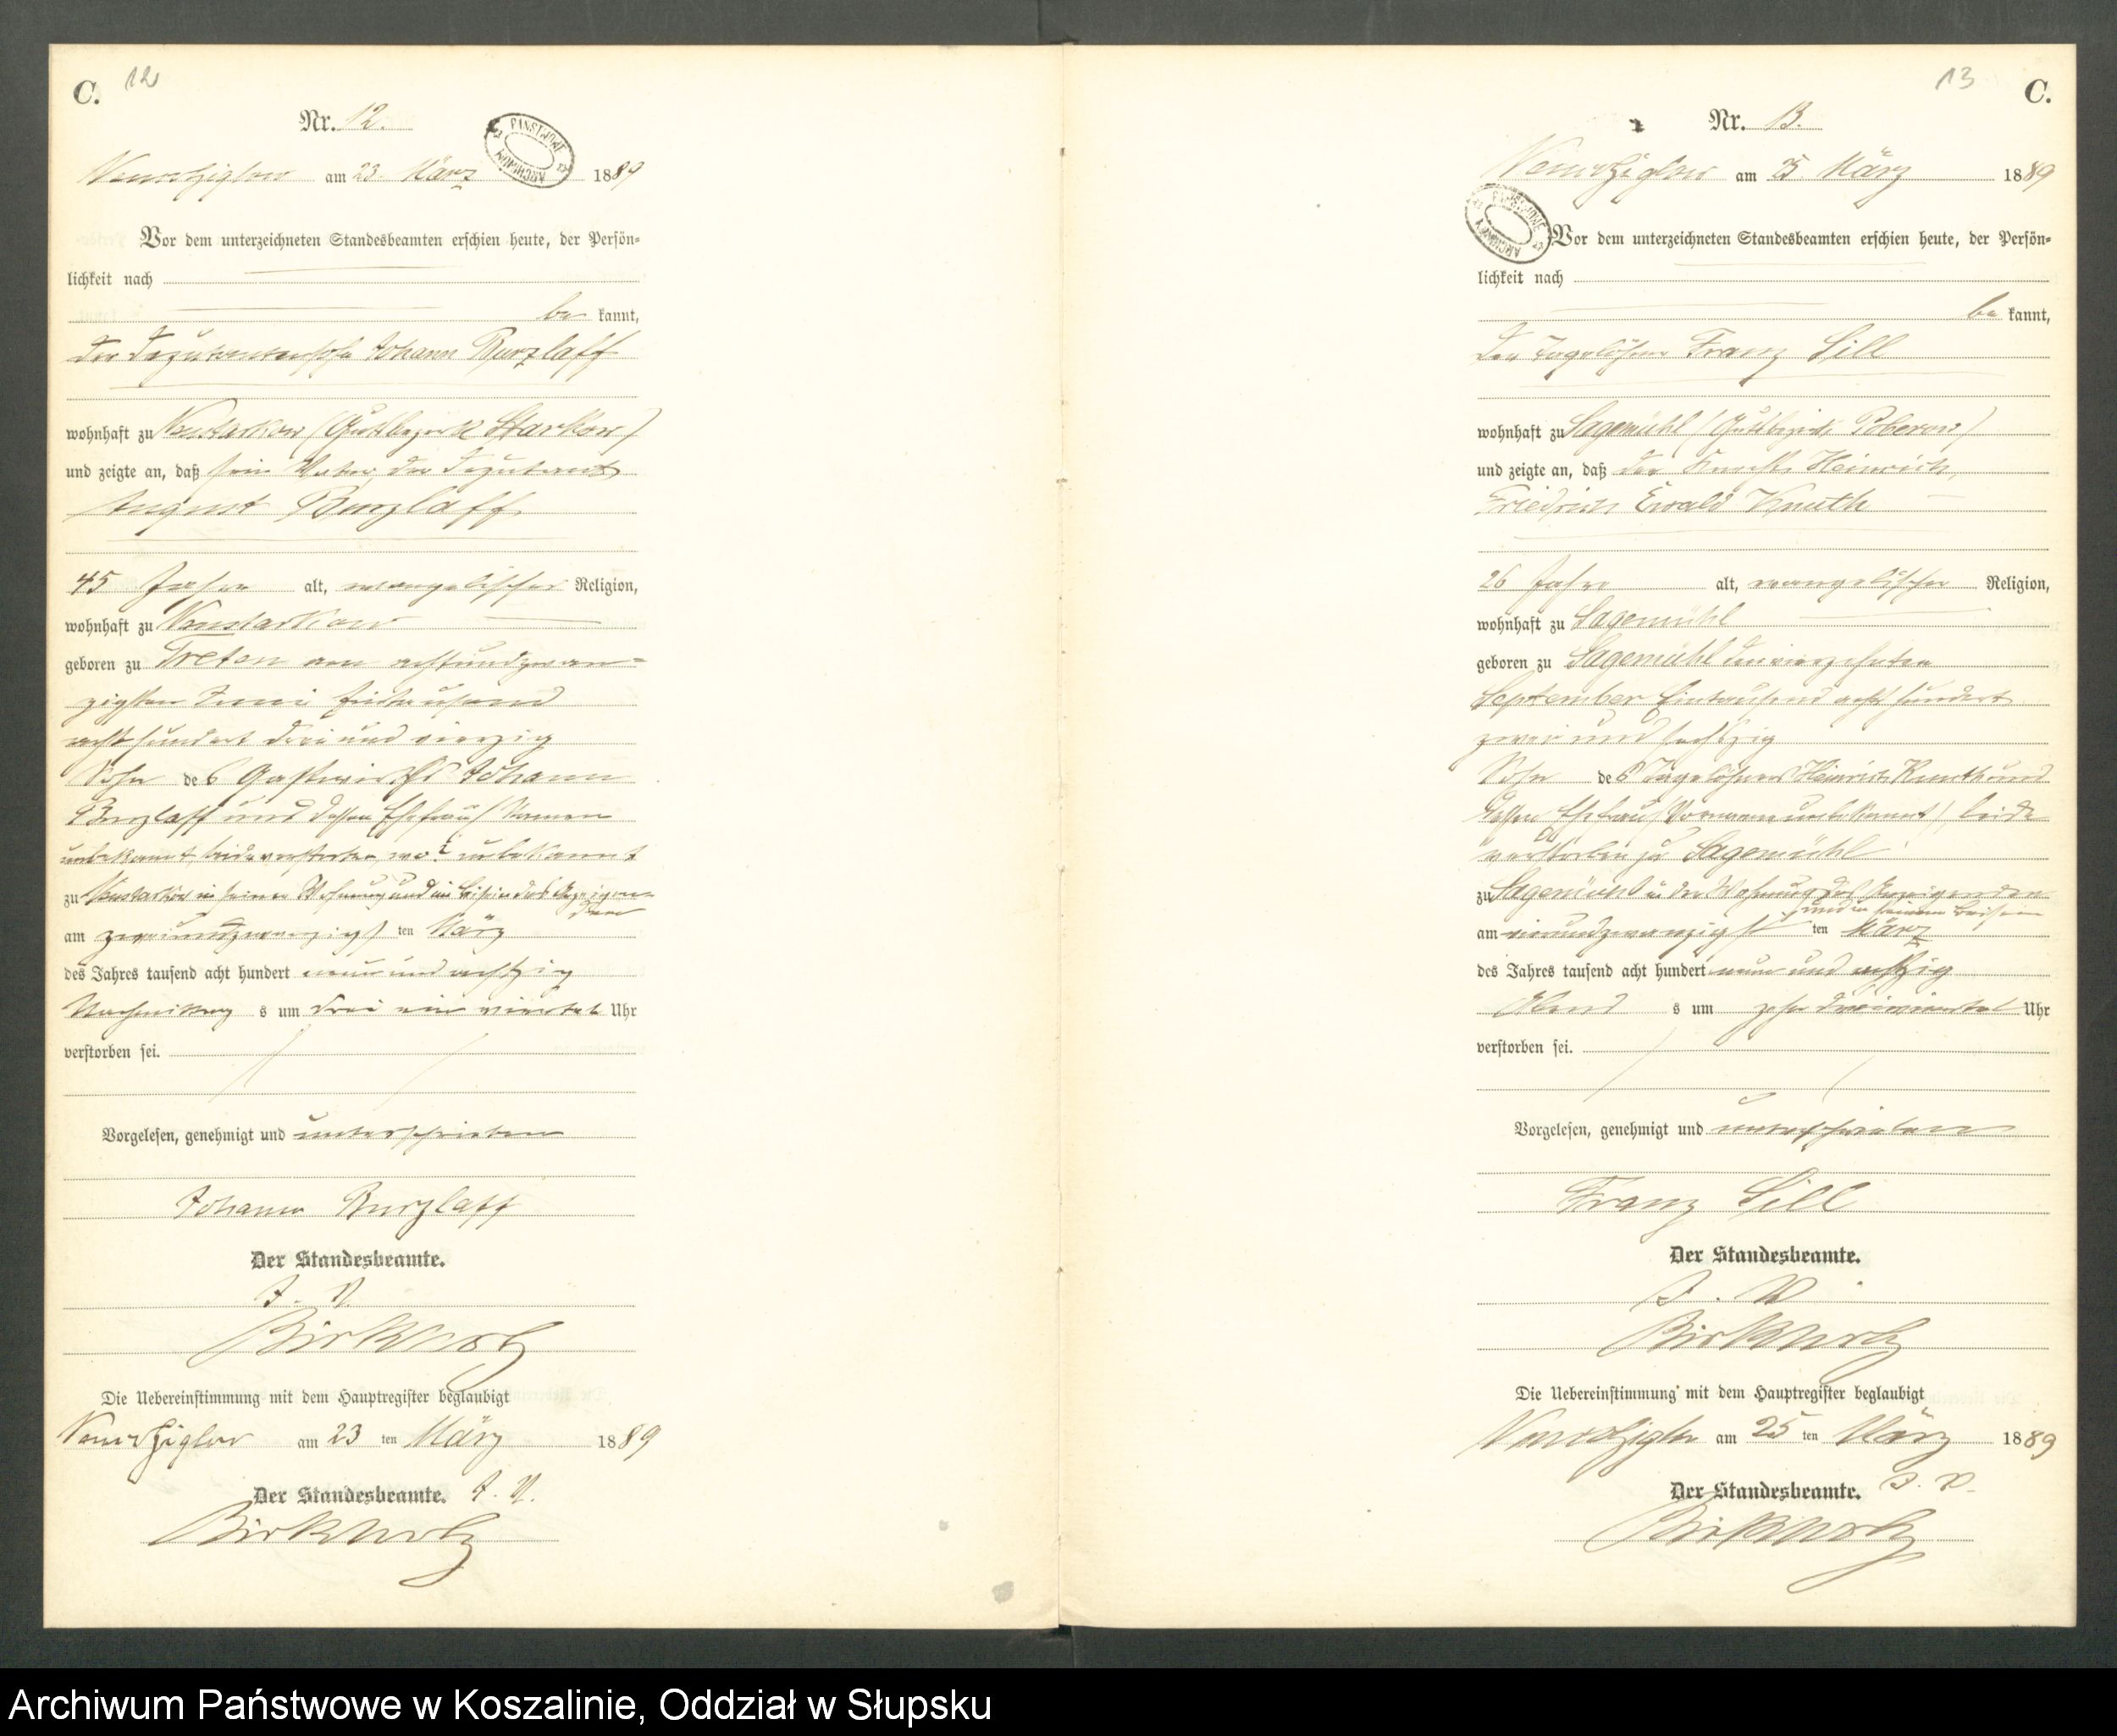 C. 12
Nr. 12.
PAŃSTWOWE ARCHIWUM
am 23. März 1889
Vor dem unterzeichneten Standesbeamten erschien heute, der Persön-
lichkeit nach
be kannt,
der Deputantensohn Johann Burzlaff
wohnhaft zu Neustarkow (Gutsbezirk Starkow)
und zeigte an, daß sein Vater, der Deputant
August Burzlaff,
45 Jahre alt, evangelischer Religion,
wohnhaft zu Neustarkow
geboren zu Treten am achtundzwan-
zigsten Juni Eintausend
acht hundert drei und vierzig
Sohn des Gastwirths Johann
Burzlaff und dessen Ehefrau (Namen
unbekannt, beide verstorben, wo? unbekannt
zu Neustarkow in seiner Wohnung und im Beisein des Anzeigen-
den
am zweiundzwanzigs ten März
des Jahres tausend acht hundert neun und achtzig
Nachmittag s um drei ein viertel Uhr
verstorben sei.
Vorgelesen, genehmigt und unterschrieben
Johann Burzlaff
Der Standesbeamte.
J. V.
Birkholz
Die Uebereinstimmung mit dem Hauptregister beglaubigt
am 23 ten März 1889
Der Standesbeamte. J. V.
Birkholz
13 C.
Nr. 13.
PAŃSTWOWE ARCHIWUM
am 25. März 1889
Vor dem unterzeichneten Standesbeamten erschien heute, der Persön-
lichkeit nach
be kannt,
der Tagelöhner Franz Sill
wohnhaft zu Sagemühl (Gutsbezirk Poberow)
und zeigte an, daß der Knecht Heinrich,
Friedrich Ewald Knuth
26 Jahre alt, evangelischer Religion,
wohnhaft zu Sagemühl
geboren zu Sagemühl den vierzehnten
September Eintausend acht hundert
zwei und sechszig
Sohn des Tagelöhners Heinrich Knuth und
dessen Ehefrau (Vorname unbekannt), beide
verstorben zu Sagemühl
zu Sagemühl in der Wohnung des Anzeigenden
und in seinem Beisein
am vierundzwanzigst ten März
des Jahres tausend acht hundert neun und achtzig
Abend s um zehn dreiviertel Uhr
verstorben sei.
Vorgelesen, genehmigt und unterschrieben
Franz Sill
Der Standesbeamte.
J. V.
Birkholz
Die Uebereinstimmung mit dem Hauptregister beglaubigt
am 25 ten März 1889
Der Standesbeamte. J. V.
Birkholz
Archiwum Państwowe w Koszalinie, Oddział w Słupsku